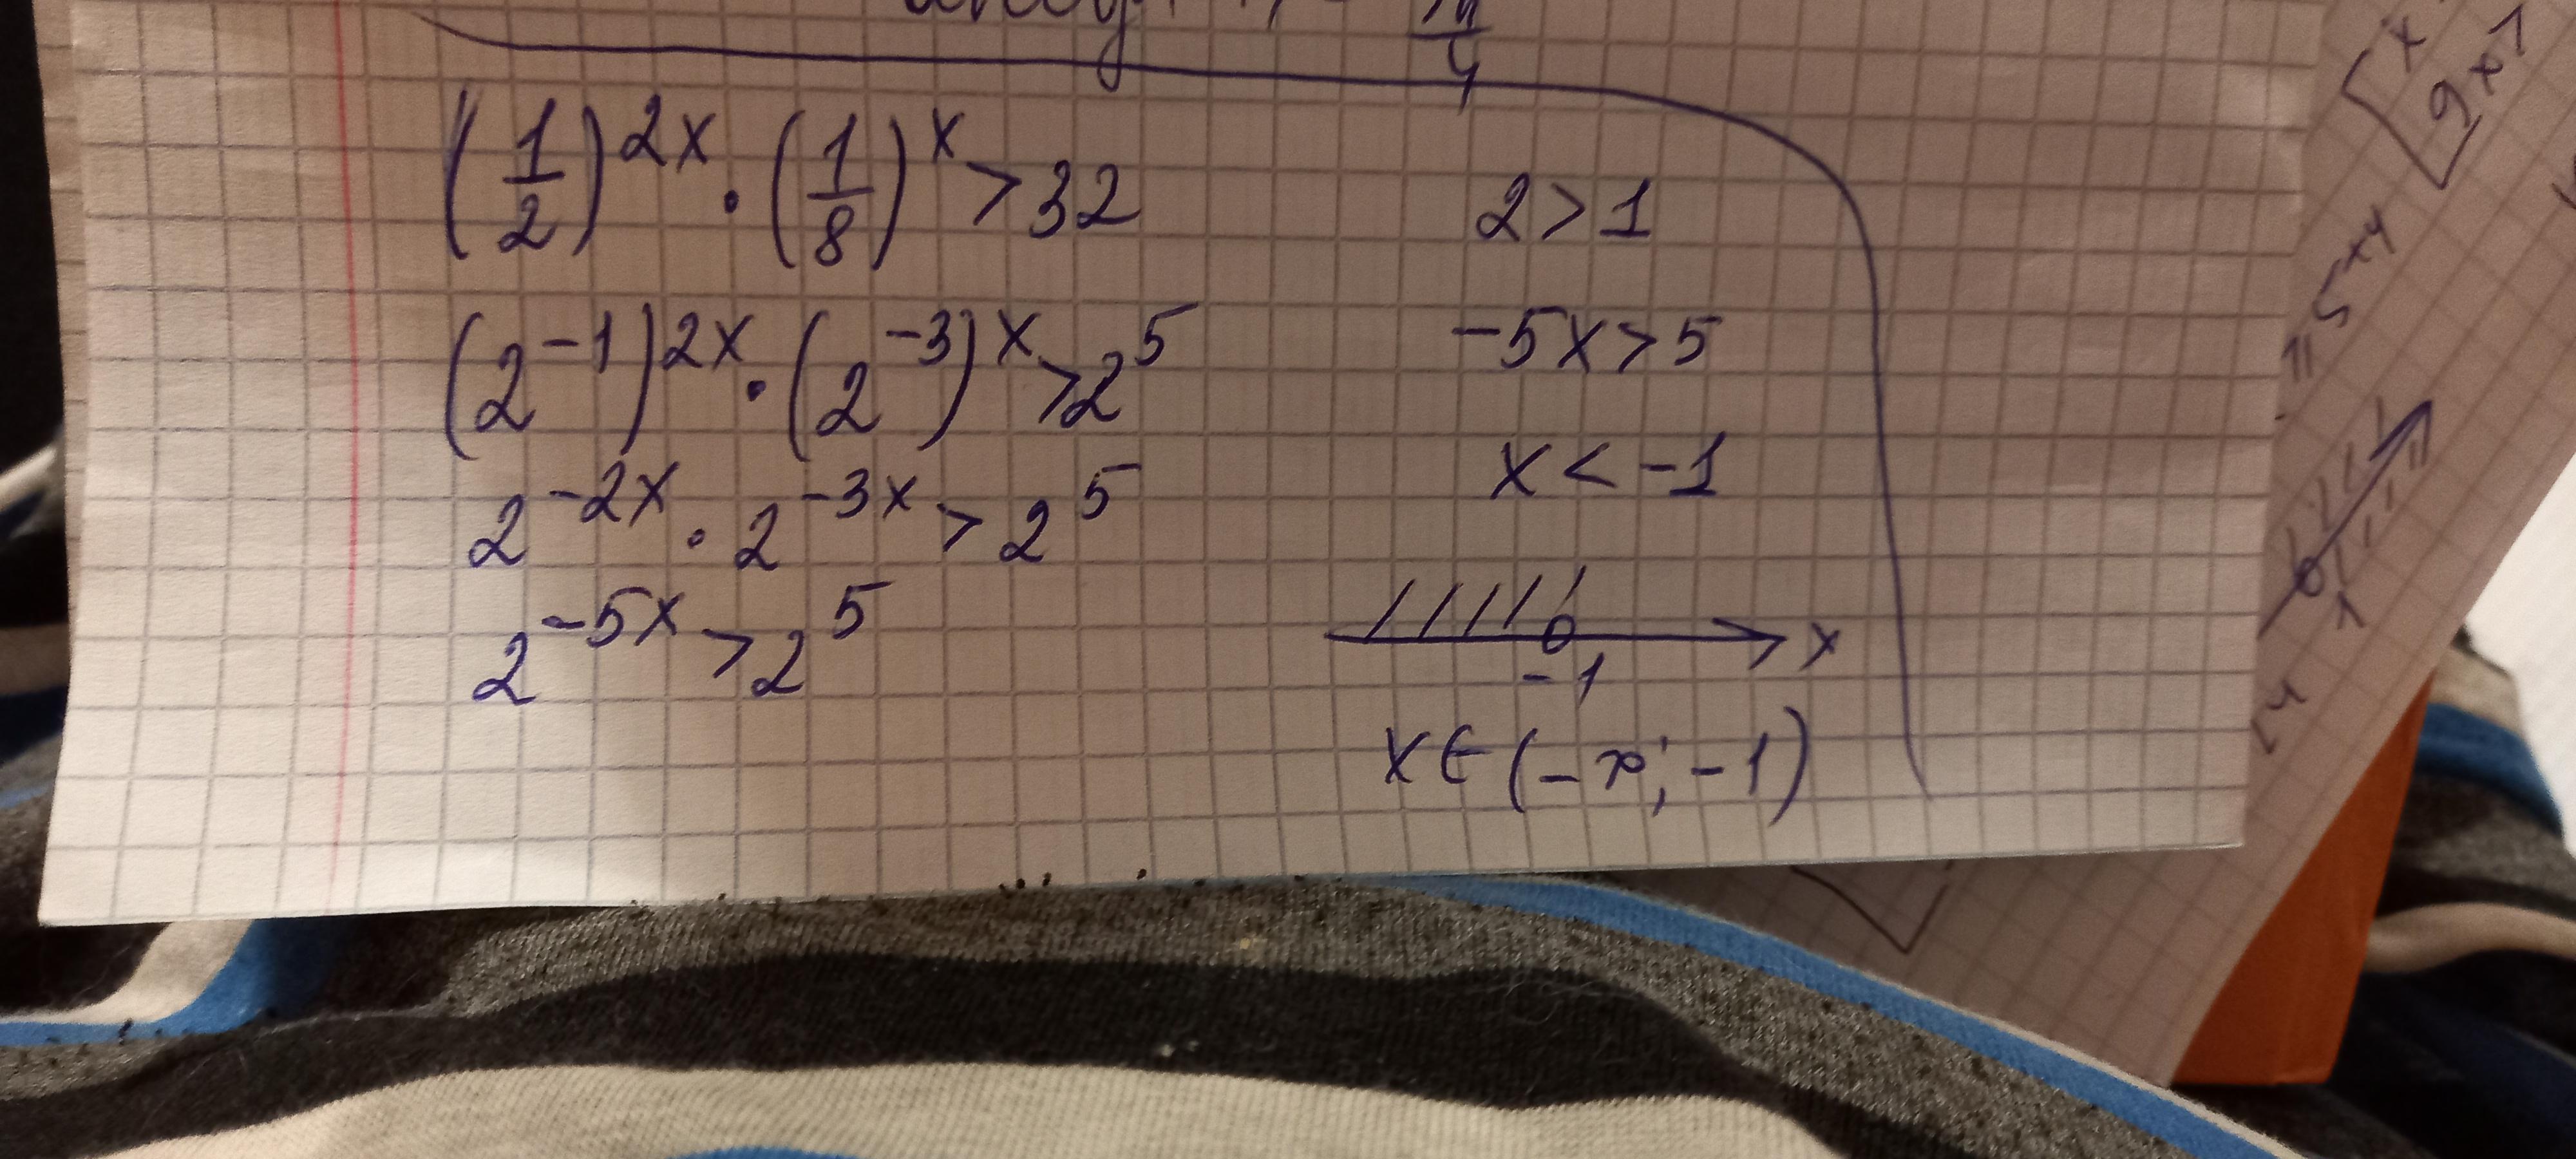 (1/2)^2x · (1/8)^x > 32
(2^-1)^2x · (2^-3)^x > 2^5
2^-2x · 2^-3x > 2^5
2^-5x > 2^5
2 > 1
-5x > 5
x < -1
-1 x
x ∈ (-∞; -1)